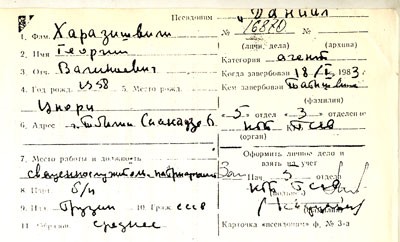 Псевдоним „Даниил"
1. Фам. Харазишвили
№ 16820 №
(личн. дела) (архива)
2. Имя Георгий
Категория агент
3. Отч. Валикоевич
Когда завербован 18/I 1983 г.
4. Год рожд. 1958 5. Место рожд.
Кем завербован
Цнори
(фамилия)
„5" отдел „3" отделение
6. Адрес г. Тбилиси Саакадзе 6.
КГБ ГССР
(орган)
Оформить личное дело и
взять на учет
7. Место работы и должность
священнослужитель патриархии
Нач. 3 отдел
8. Парт б/п
КГБ ГССР
9. Нац. Грузин 10. Граж. СССР
11. Образов. среднее
Карточка «псевдоним» ф. № 3-а